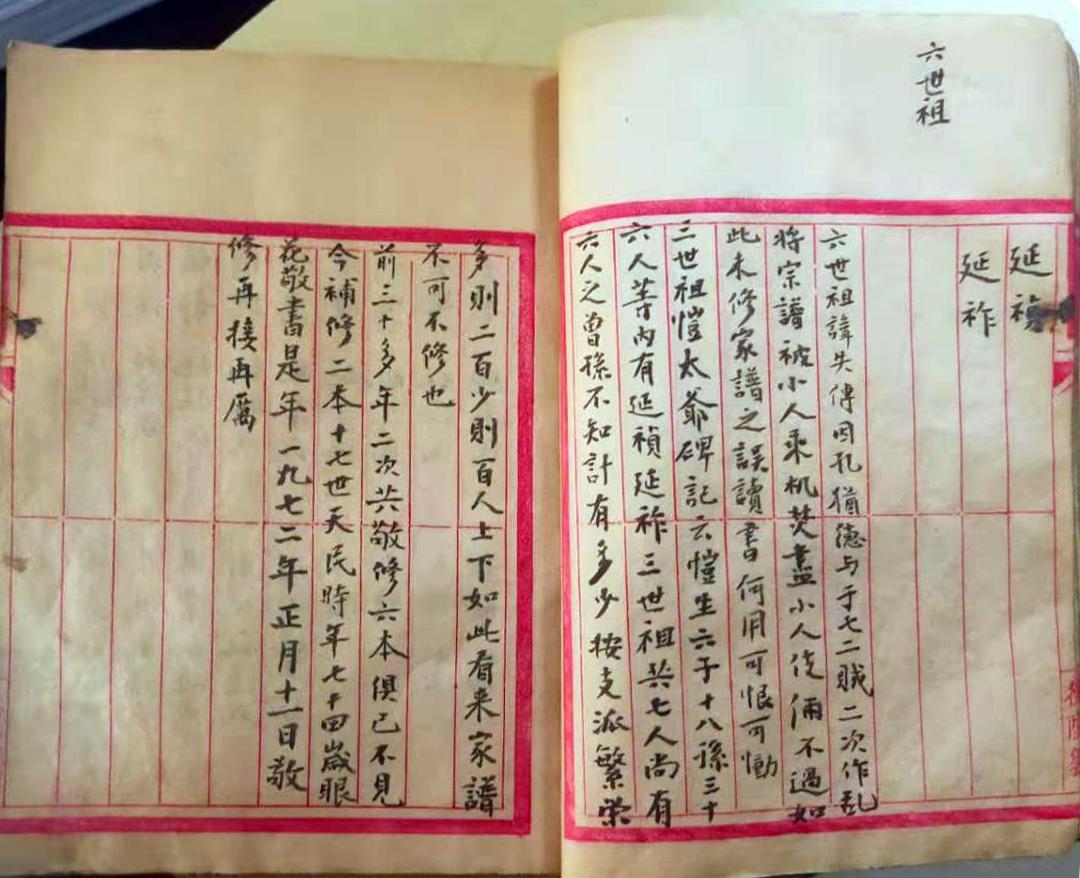 六世祖
延禎
延祚
六世祖諱失傳因孔猶德与于七二賊二次作乱
将宗譜被小人乘机焚盡小人伎俩不過如
此未修家譜之誤讀書何用可恨可慟
三世祖愷太爺碑記云愷生六子十八孫三十
六人等内有延禎延祚三世祖共七人尚有
六人之曾孫不知計有多少按支派繁荣
多則二百少則百人上下如此看来家譜
不可不修也
前三十多年二次共敬修六本俱已不見
今補修二本十七世天民時年七十四歲眼
花敬書是年一九七二年正月十一日敬
修再接再厲